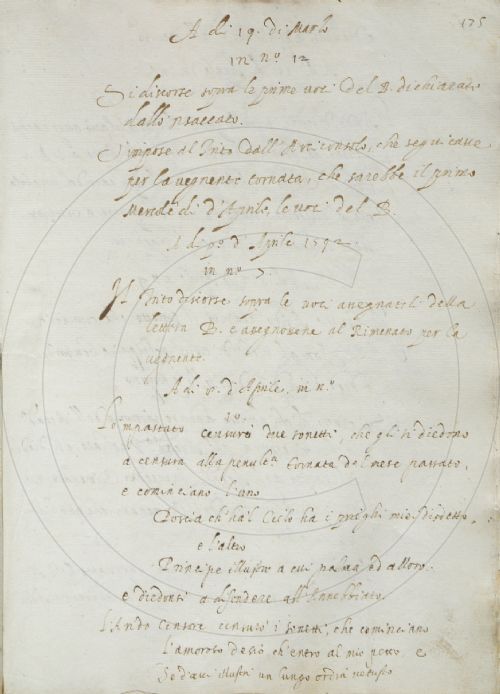 175
A dì 19. di Marzo
in nº 12
Si discorse sopra le prime voci del B. dichiarate
dallo 'nsaccato.
S'impose al Trito dall'Arciconsolo, che seguitasse
per la vegnente tornata, che sarebbe il primo
Mercoledì d'Aprile, le voci del B.
A dì pº d'Aprile 1592
in nº 7.
Il Trito discorse sopra le voci assegnateli della
lettera B. e assegnossene al Rimenato per la
vegnente.
A dì 8. d'Aprile in nº
10.
Lo 'mpastato censurò due sonetti, che gli si diedono
a censura alla penulta tornata del mese passato,
e cominciano l'uno
Poscia ch'ha'l Cielo ha i prieghi miei
e l'altro
Principe illustre a cui palma ed alloro.
e diedonsi a difendere all'Annebbiato.
Censore censurò i sonetti, che cominciano
L'amoroso desio ch'entro al mio petto, e
Se d'avi illustri un lungo ordin